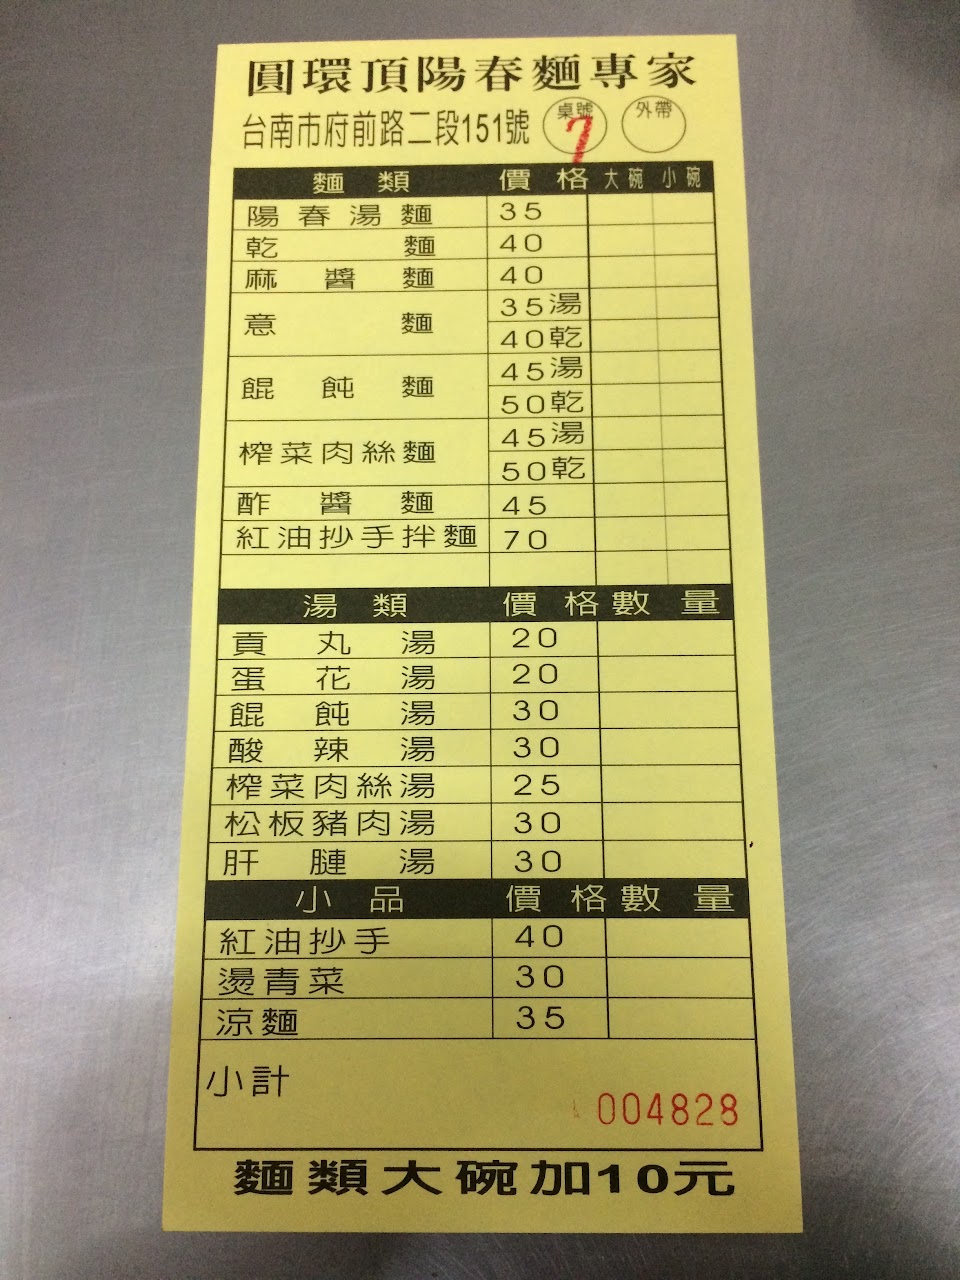 圓環頂陽春麵專家
台南市府前路二段151號 桌號 7 外帶
麵類 價格 大碗 小碗
陽春湯麵 35
乾麵 40
麻醬麵 40
意麵 35湯
40乾
餛飩麵 45湯
50乾
榨菜肉絲麵 45湯
50乾
酢醬麵 45
紅油抄手拌麵 70
湯類 價格 數量
貢丸湯 20
蛋花湯 20
餛飩湯 30
酸辣湯 30
榨菜肉絲湯 25
松板豬肉湯 30
肝腱湯 30
小品 價格 數量
紅油抄手 40
燙青菜 30
涼麵 35
小計
004828
麵類大碗加10元